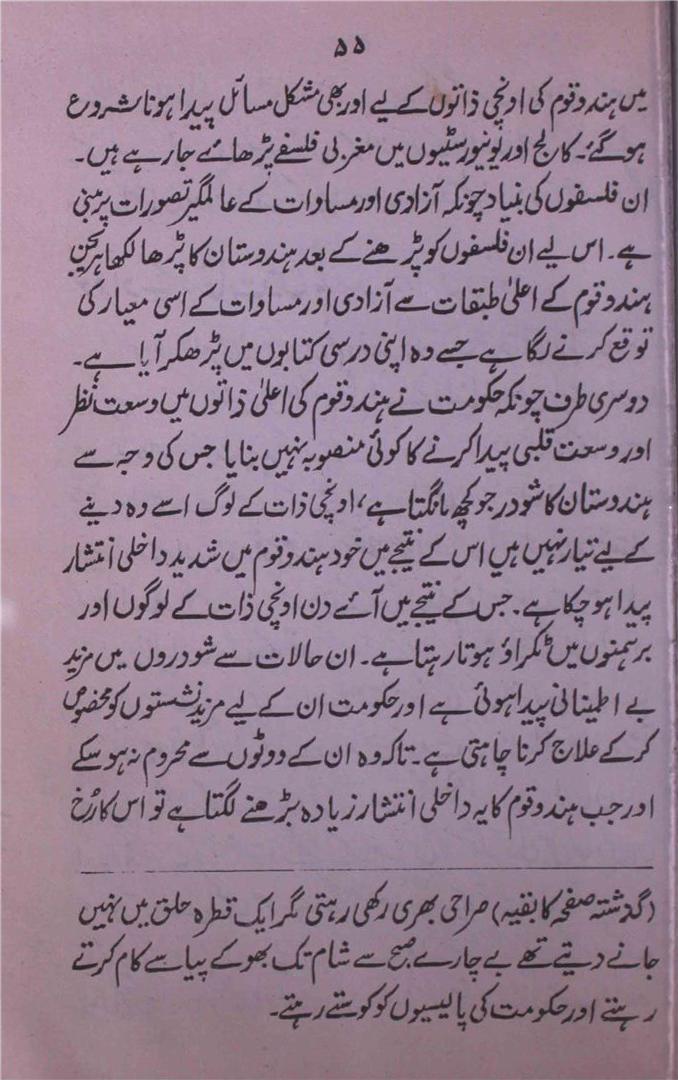 ۵۵
میں ہندو قوم کی اونچی ذاتوں کے لیے اور بھی مشکل مسائل پیدا ہونا شروع
ہو گئے۔ کالج اور یونیورسٹیوں میں مغربی فلسفے پڑھائے جا رہے ہیں۔
ان فلسفوں کی بنیاد چونکہ آزادی اور مساوات کے عالمگیر تصورات پر مبنی
ہے۔ اس لیے ان فلسفوں کو پڑھنے کے بعد ہندوستان کا پڑھا لکھا ہریجن
ہندو قوم کے اعلیٰ طبقات سے آزادی اور مساوات کے اسی معیار کی
توقع کرنے لگا ہے جسے وہ اپنی درسی کتابوں میں پڑھ کر آیا ہے۔
دوسری طرف چونکہ حکومت نے ہندو قوم کی اعلیٰ ذاتوں میں وسعت نظر
اور وسعت قلبی پیدا کرنے کا کوئی منصوبہ نہیں بنایا جس کی وجہ سے
ہندوستان کا شودر جو کچھ مانگتا ہے، اونچی ذات کے لوگ اسے وہ دینے
کے لیے تیار نہیں ہیں اس کے نتیجے میں خود ہندو قوم میں شدید داخلی انتشار
پیدا ہو چکا ہے۔ جس کے نتیجے میں آئے دن اونچی ذات کے لوگوں اور
برہمنوں میں ٹکراؤ ہوتا رہتا ہے۔ ان حالات سے شودروں میں مزید
بے اطینانی پیدا ہوئی ہے اور حکومت ان کے لیے مزید نشستوں کو مخصوص
کر کے علاج کرنا چاہتی ہے۔ تاکہ وہ ان کے ووٹوں سے محروم نہ ہو سکے
اور جب ہندو قوم کا یہ داخلی انتشار زیادہ بڑھنے لگتا ہے تو اس کا رُخ
(گذشتہ صفحہ کا بقیہ) صراحی بھری رکھی رہتی مگر ایک قطرہ حلق میں نہیں
جانے دیتے تھے بے چارے صبح سے شام تک بھوکے پیاسے کام کرتے
رہتے اور حکومت کی پالیسیوں کو کوستے رہتے۔